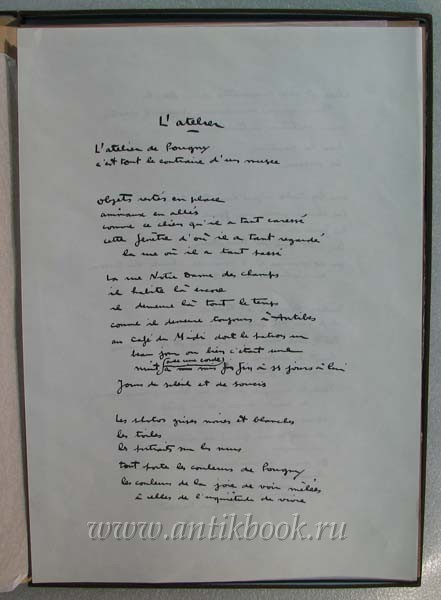 L'atelier
L'atelier de Pougny
c'est tout le contraire d'un musée
objets restés en place
animaux en allés
comme ce chien qu'il a tant caressé
cette fenêtre d'où il a tant regardé
la rue où il a tant passé
La rue Notre Dame des champs
il habite là encore
il demeure là tout le temps
comme il demeure toujours à Antibes
au Café du Midi dont le patron un
beau jour ou bien c'était une
nuit avec une corde mis fin à ses jours à lui
Jours de soleil et de soucis
Les photos grises noires et blanches
les toiles
les portraits sur les murs
tout porte les couleurs de Pougny
les couleurs de la joie de voir mêlées
à celles de l'inquiétude de vivre
www.antikbook.ru